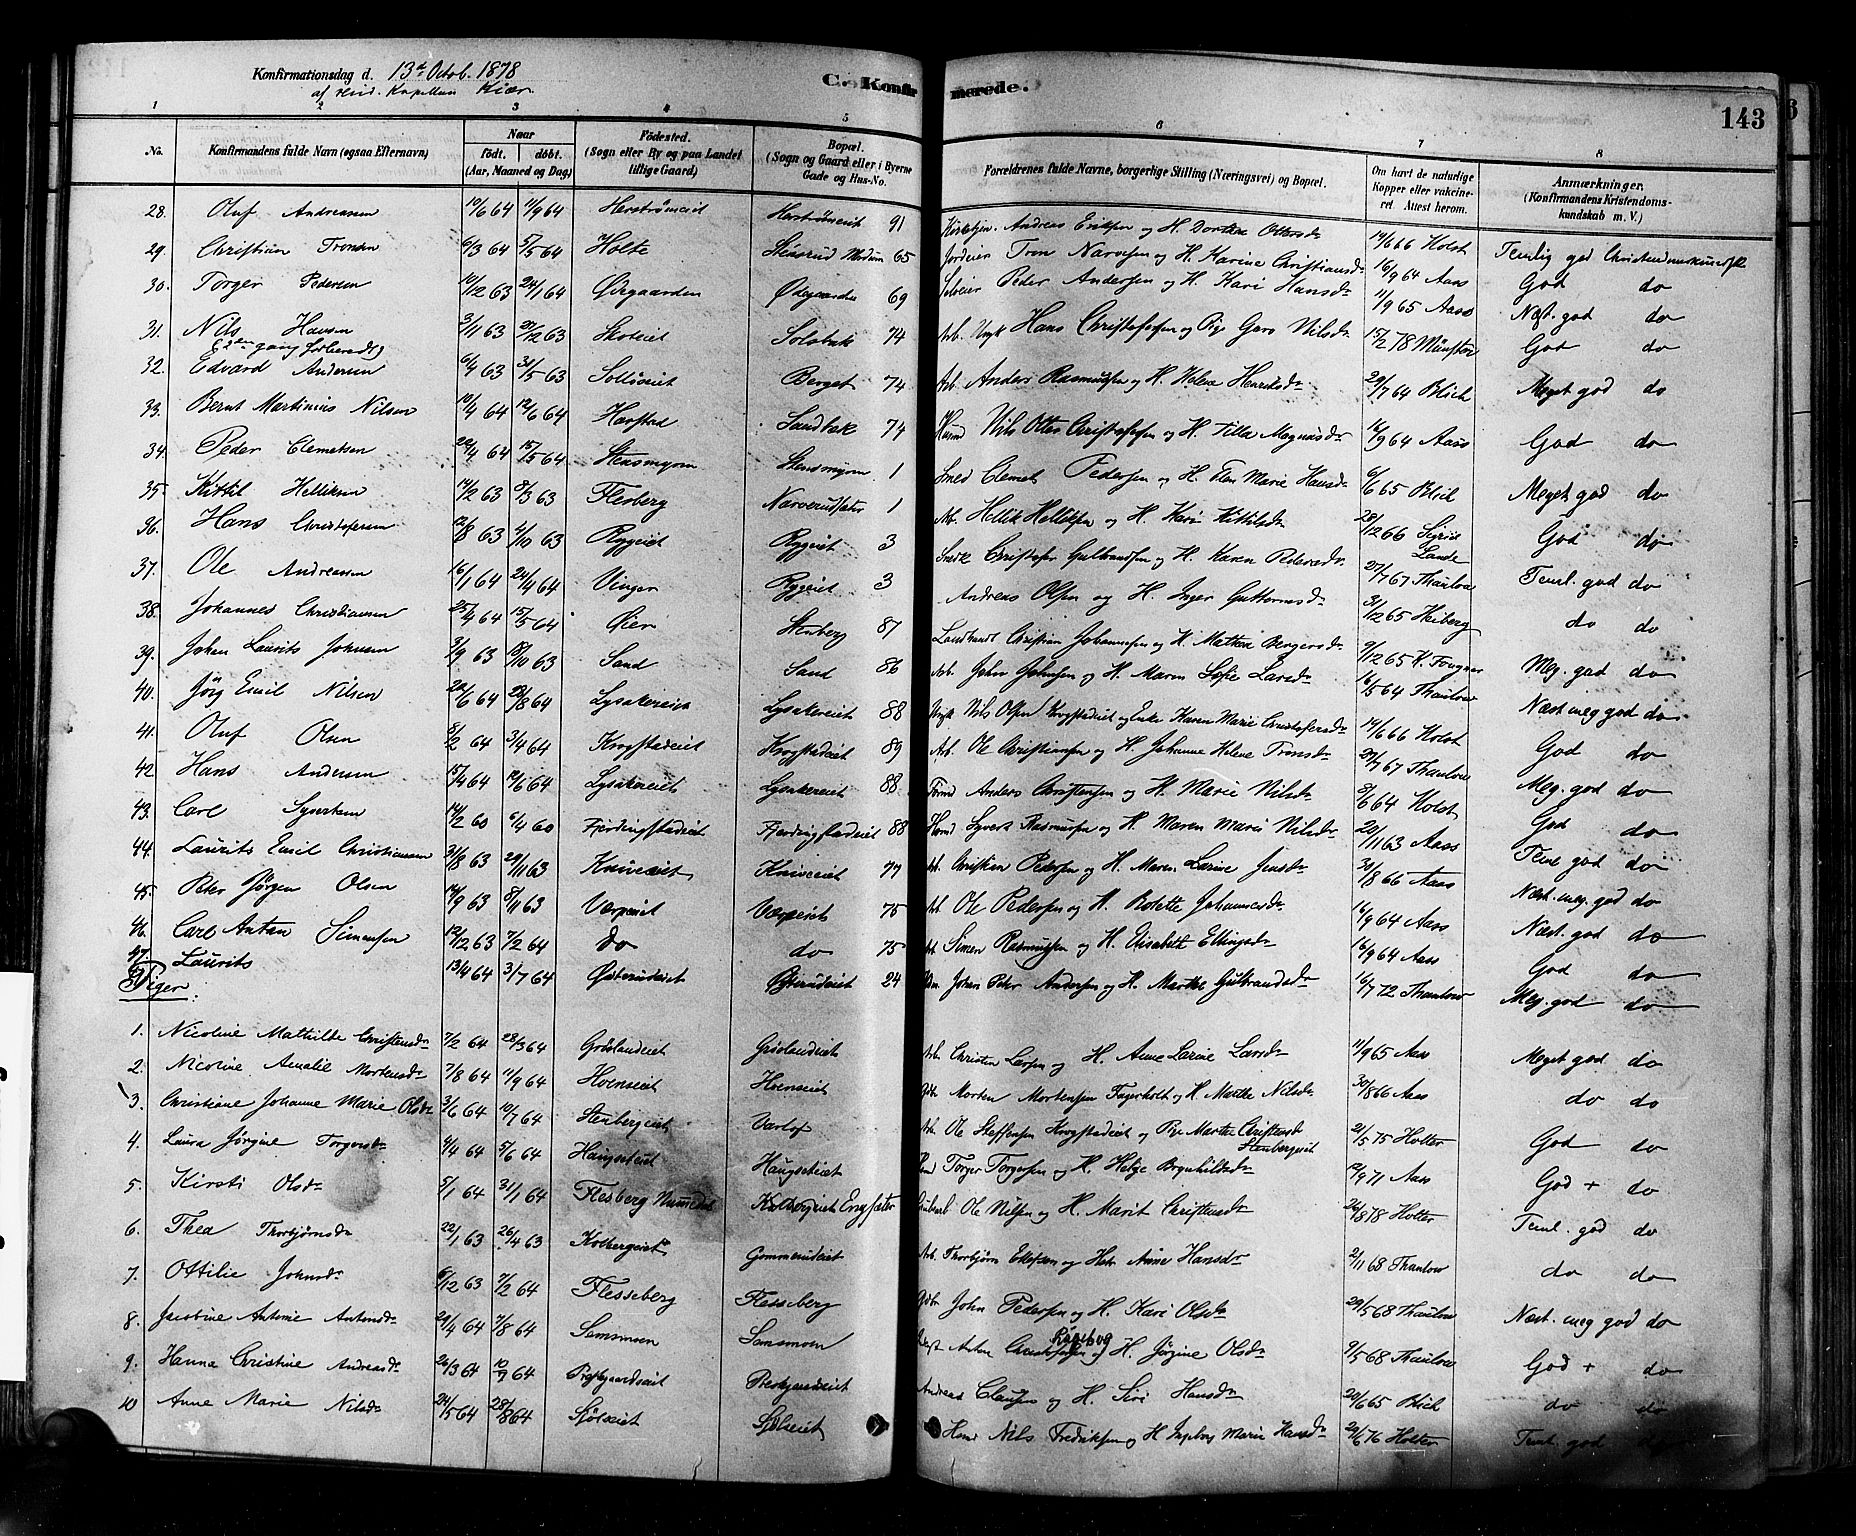 Konfirmationsdag d. 13de Octob. 1878
af resid. Kapellan Kiær
C. Konfirmerede.
143
1 2 3 4 5 6 7 8
No. Konfirmandens fulde Navn (ogsaa Efternavn) Naar født. døbt. (Aar, Maaned og Dag) Fødested. (Sogn eller By og paa Landet tillige Gaard) Bopæl. (Sogn og Gaard eller i Byerne Gade og Hus-No. Forældrenes fulde Navne, borgerlige Stilling (Næringsvei) og Bopæl. Om havt de naturlige Kopper eller vakcineret. Attest herom. Anmærkninger. (Konfirmandens Kristendomskundskab m. V.)
28. Oluf Andreassen 10/6 64 11/9 64 Herstrømeiet Herstrømeiet 91 Andreas Eriksen og H. Dorthea Ottersdr 14/6 66 Holst Temlig god Christendomskundsk
29. Christian Tronsen 6/3 64 5/5 64 Holte Modum 65 Jordeier Tron Narvesen og H. Karine Christiansdr 16/9 64 Aass God do
30. Torger Pedersen 10/12 63 24/1 64 Ødegaarden Ødegaarden 69 Selveier Peder Andersen og H. Kari Hansdr 11/9 65 Aass Næst. god do
31. Nils Hansen 3/11 63 21/12 63 Skoteiet Solobak 74 Arb. Ungk Hans Christofersen og Pige Guro Nilsdr 15/2 78 Münster God do
(2den gang forberedt)
32. Edvard Andersen 6/4 63 31/5 63 Solløseiet Berget 74 Arb. Anders Rasmussen og H. Helene Henriksdr 29/7 64 Blich Meget god do
33. Bernt Martinius Nilsen 10/4 64 12/6 64 Harstad Sandbæk 74 Husmd Nils Otter Christofersen og H. Tilla Magnusdr 16/9 64 Aass God do
34. Peder Clemetsen 20/4 64 15/5 64 Stensmyren Stensmyren 1 Smed Clemet Pedersen og H. Elen Marie Hansdr 6/6 65 Blich Meget god do
35. Kittil Helliksen 14/2 63 8/3 63 Flesberg Narverudsæter 1 Arb. Hellik Helliksen og H. Kari Kittilsdr 28/12 66 Sigrid Lande God do
36. Hans Christofersen 12/8 63 4/10 63 Rygeiet Rygeiet 3 Christofer Gulbrandsen og H. Karen Pedersdr 27/7 67 Thaulow Teml. god do
37. Ole Andreassen 16/1 64 24/4 64 Vinger Rygeiet 3 Andreas Olsen og H. Inger Guttormsdr 31/12 65 Heiberg do do
38. Johannes Christiansen 25/4 64 15/5 64 Øier Stenberg 87 Landhandl Christian Johannessen og H. Mathea Bergersdr 9/12 65 Meg. god do
39. Johan Laurits Johnsen 3/9 63 18/10 63 Sand Sand 86 Arb. John Johnsen og H. Maren Sofie Larsdr 16/5 64 Thaulow Næst meg god do
40. Jørg Emil Nilsen 20/6 64 28/8 64 Lysakereiet Lysakereiet 88 Ungk Nils Olsen Krogstadeiet og Enke Karen Marie Christofersdr 14/6 66 Holst God do
41. Oluf Olsen 8/2 64 3/4 64 Krogstadeiet Krogstadeiet 89 Arb. Ole Christiansen og H. Johanne Helene Tronsdr 29/7 67 Thaulow Meg. god do
42. Hans Andersen 15/4 64 12/6 64 Lysakereiet Lysakereiet 88 Tømd Anders Christensen og H. Marie Nilsdr 5/6 64 Holst God do
43. Carl Syvertsen 14/2 60 6/4 60 Fjerdingstadeiet Fjerdingstadeiet 88 Husmd Syvert Rasmussen og H. Maren Marie Nilsdr 20/11 63 Aass Teml god do
44. Laurits Emil Christiansen 31/8 63 29/11 63 Kniveeiet Kniveeiet 77 Arb. Christian Pedersen og H. Maren Larine Jensdr 30/8 66 Aass Næst. meg. god do
45. Peter Jørgen Olsen 14/9 63 8/11 63 Værpeiet Værpeiet 75 Arb Ole Pedersen og H. Rolette Johannesdr 16/9 64 Aass Næst. god do
46. Carl Anton Simensen 12/12 63 7/2 64 do do 75 Arb Simen Rasmussen og H. Elisabeth Ellingsdr 16/9 64 Aass God do
47. Laurits 13/4 64 3/7 64 Østerudeiet Østerudeiet 24 Johan Peter Andersen og H. Marthe Gulbrandsdr 16/7 72 Thaulow Meg. god do
Piger:
1. Nicoline Mathilde Christensdr 7/2 64 28/3 64 Grøslandeiet Grøslandeiet Arb. Christen Larsen og H. Anne Larine Larsdr 11/9 65 Aass Meget god do
2. Nicoline Amalie Mortensdr 7/8 64 11/9 64 Hoenseiet Hoenseiet Gdbr Morten Mortensen Fagerholt og H. Marthe Nilsdr 30/8 66 Aass do do
3. Christiane Johanne Marie Olsdr 3/6 64 10/7 64 Stenbergeiet Varlo Arb. Ole Steffensen Krogstadeiet og Pige Marthe Christensd Stenbergeiet 21/5 75 Holter God do
4. Laura Jørgine Torgersdr 4/4 64 5/6 64 Haugseiet Haugseiet Torger Torgersen og H. Helge Brynhildsdr 12/9 71 Aass God + do
5. Kirsti Olsdr 5/1 64 31/1 64 Flesberg Numedal Kolbergeiet Engsæter Ole Nilsen og H. Marit Christensdr 26/8 78 Holter Teml. god do
6. Thea Thorbjørnsdr 22/1 63 26/4 63 Kolbergeiet Gommerudeiet Arb. Thorbjørn Ellefsen og Hstr Anne Hansdr 2/11 68 Thaulow do do
7. Ottilie Johnsdr 6/12 63 7/2 64 Flesseberg Flesseberg Gdbr John Pedersen og H. Kari Olsdr 29/5 68 Thaulow Næst. meg god do
8. Jacobine Antonie Antonsdr 29/4 64 7/8 64 Semsmoen Semsmoen Anton Christofersen Kågebog og H. Jørgine Olsdr 9/5 68 Thaulow God + do
9. Hanna Christine Andreasdr 26/3 64 10/9 64 Prestgaardseiet Prestgaardseiet Andreas Clausen og H. Siri Hansdr 20/6 65 Blich do do
10 Anne Marie Nilsdr 24/5 64 28/8 64 Sjølseiet Sjølseiet Husmd Nils Fredriksen og H Ingeborg Marie Hansdr 29/6 76 Holter Teml. god do